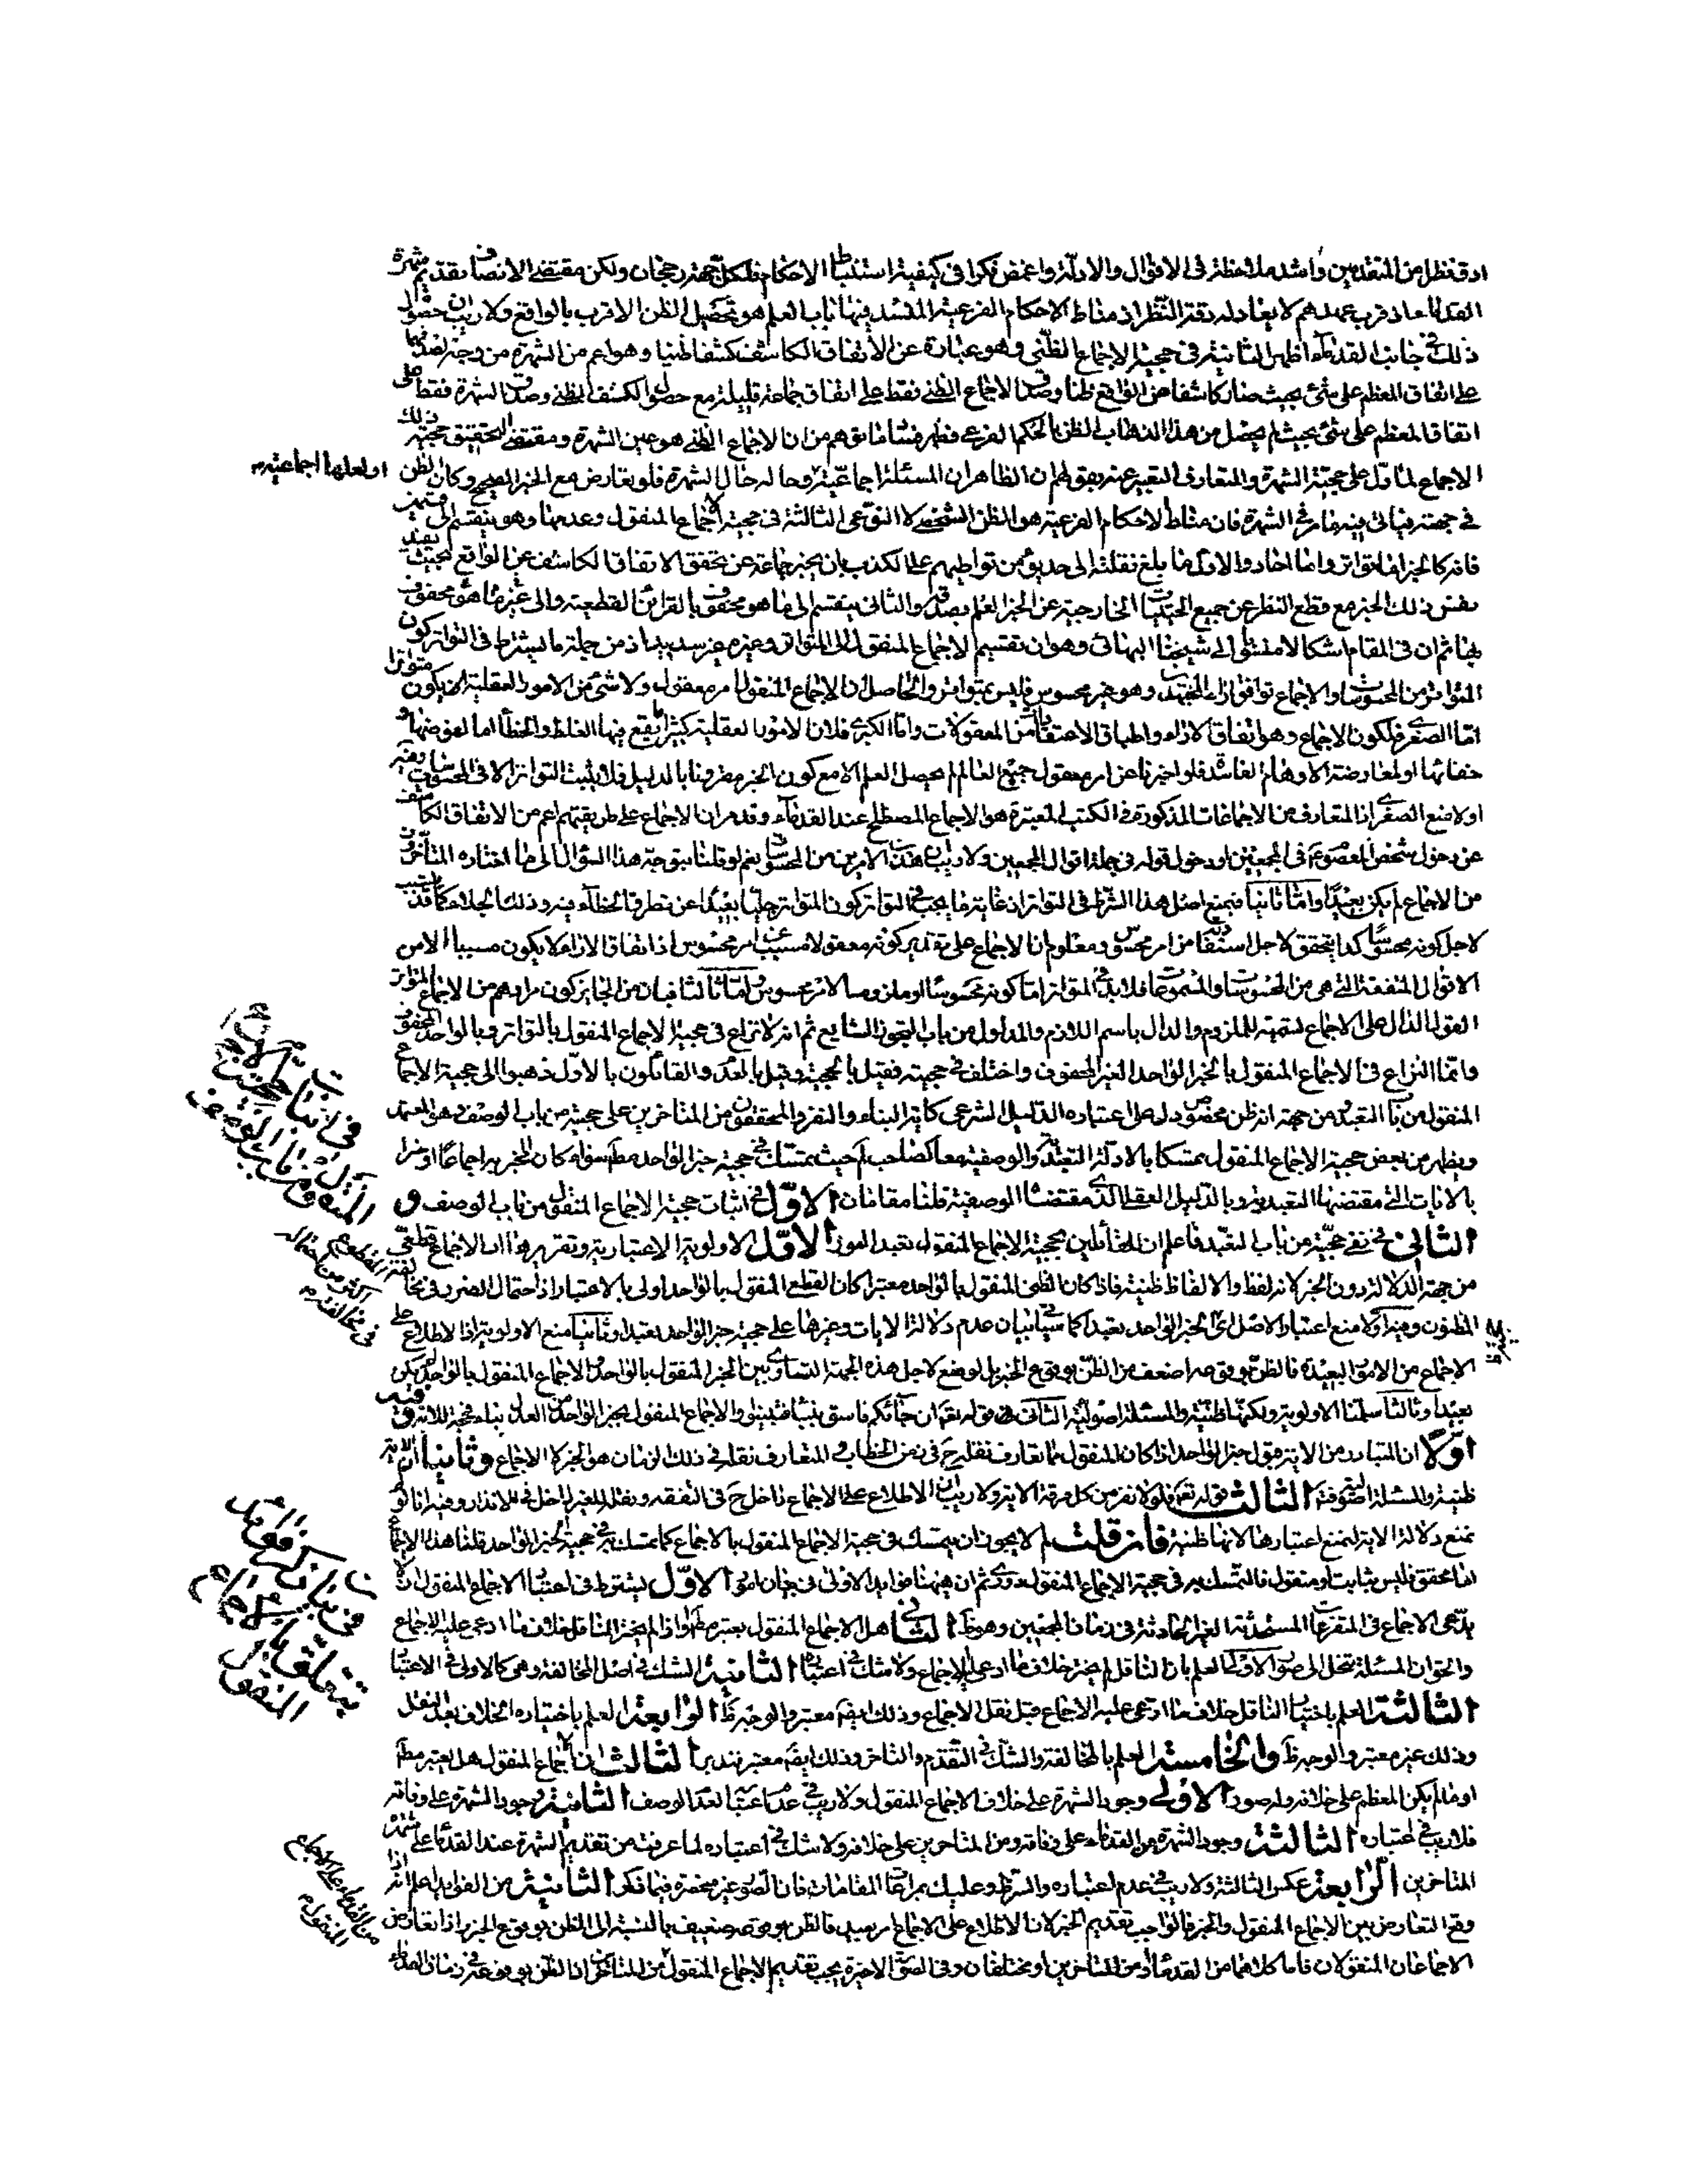 ادق نظرا من المتقدمين واشد ملاحظة فى الاقوال والادلة واغمض فكرا فى كيفية استنباط الاحكام فلكل جهة رجحان ولكن مقتضى الانصاف تقديم شهرة
القدماء اذ قرب عهدهم لا يعادله دقة النظر اذ مناط الاحكام الفرعية المنسد فيها باب العلم هو تحصيل الظن الاقرب بالواقع ولا ريب ان حصول
ذلك فى جانب القدماء اظهر الثانية فى حجية الاجماع الظنى وهو عبارة عن الاتفاق الكاشف كشفا ظنيا وهو اعم من الشهرة من وجه لصدقهما
على اتفاق المعظم على شئ بحيث صار كاشفا عن الواقع ظنا وصدق الاجماع الظنى فقط على اتفاق جماعة قليلة مع حصول الكشف الظنى وصدق الشهرة فقط على
اتفاق المعظم على شئ بحيث لم يحصل من هذا الذهاب الظن بالحكم الفرعى فظهر فساد ما توهم من ان الاجماع الظنى هو عين الشهرة ومقتضى التحقيق حجية ذلك
الاجماع لما دل على حجية الشهرة والمتعارف التعبير عنه بقولهم ان الظاهر ان المسئلة اجماعية وحاله حال الشهرة فلو تعارض مع الخبر الصحيح وكان الظن
او لعلها اجماعية م
فى جهة فياتى فيه ما مر فى الشهرة فان مناط الاحكام الفرعية هو الظن الشخصى لا النوعى الثالثة فى حجية الاجماع المنقول وعدمها وهو ينقسم الى قسمين
فانه كالخبر اما متواتر واما احاد والاول ما بلغ نقلته الى حد يؤمن تواطيهم على الكذب بان يخبر جماعة عن تحقق الاتفاق الكاشف عن الواقع بحيث يفيد
نفس ذلك الخبر مع قطع النظر عن جميع الحيثيات الخارجية عن الخبر العلم بصدقه والثانى ينقسم الى ما هو محفوف بالقرائن القطعية والى غير ما هو محفوف
بها ثم ان فى المقام اشكالا منسوبا الى شيخنا البهائى وهو ان تقسيم الاجماع المنقول الى المتواتر وغيره غير سديد اذ من جملة ما يشترط فى التواتر كون
المتواتر من المحسوسات والاجماع توافق اراء المجتهدين وهو غير محسوس فليس بمتواتر والحاصل ان الاجماع المنقول امر معقول ولا شئ من الامور العقلية ان يكون متواترا
اما الصغرى فلكون الاجماع وهو اتفاق الاراء واطباق الاعتقادات من المعقولات واما الكبرى فلان الامور العقلية كثيرا ما يقع فيها الغلط والخطأ اما لغموضها و
خفائها او لمعارضة الاوهام الفاسدة فلو اخبرنا عن امر معقول جميع العالم لم يحصل العلم الا مع كون الخبر مقرونا بالدليل فلا يثبت التواتر الا فى المحسوسات وفيه
اولا منع الصغرى اذ المتعارف من الاجماعات المذكورة فى الكتب المعتبرة هو الاجماع المصطلح عند القدماء وقد مر ان الاجماع على طريقتهم اعم من الاتفاق الكاشف
عن دخول شخص المعصوم فى المجمعين او دخول قوله فى جملة اقوال المجمعين ولا ريب ان هذين الامرين من المحسوسات نعم لو قلنا بتوجه هذا السؤال الى ما اختاره المتأخرون
من الاجماع لم يكن بعيدا واما ثانيا فبمنع اصل هذا الشرط فى التواتر اذ غاية ما يجب فى التواتر كون المتواتر جليا بعيدا عن تطرق الخطاء فيه وذلك الجلاء كما قد يتسبب
لاجل كونه محسوسا كذا يتحقق لاجل استفادته من امر محسوس ومعلوم ان الاجماع على تقدير كونه معقولا مسبب عن امر محسوس اذ اتفاق الاراء لا يكون مسببا الا من
الاقوال المتفقة التى هى من المحسوسات والمسموعات فلا بد فى المتواتر اما كونه محسوسا او ملزوما لامر محسوس واما ثالثا فبان من الجايز كون مرادهم من الاجماع المتواتر
القول الدال على الاجماع تسمية للملزوم والدال باسم اللازم والمدلول من باب التجوز الشايع ثم انه لا نزاع فى حجية الاجماع المنقول بالتواتر وبالواحد المحفوف
وانما النزاع فى الاجماع المنقول بالخبر الواحد الغير المحفوف واختلف فى حجيته فقيل بالحجية وقيل بالعدم والقائلون بالاول ذهبوا الى حجية الاجماع
المنقول من باب التعبد من جهة انه ظن مخصوص دل على اعتباره الدليل الشرعى كاية النباء والنفر والمحققون من المتاخرين على حجيته من باب الوصف وهو المعتمد
ويظهر من بعض حجية الاجماع المنقول بتمسكا بالادلة التعبدية والوصفية معا كصاحب لم حيث تمسك فى حجية خبر الواحد مطلقا سواء كان المخبر به اجماعا او خبرا
بالايات التى مقتضيها التعبدية وبالدليل العقلى الذى مقتضاه الوصفية فلنا مقامان الاول فى اثبات حجية الاجماع المنقول من باب الوصف و
الثانى فى نفى حجيته من باب التعبد فاعلم ان للقائلين بحجية الاجماع المنقول تعبدا امورا الاول الاولوية الاعتبارية وتقريرها ان الاجماع قطعى
من جهة الدلالة دون الخبر لانه لفظ والالفاظ ظنية فاذا كان الظنى المنقول بالواحد معتبرا كان القطعى المنقول بالواحد اولى بالاعتبار اذ احتمال الضرر فى مخالفة
المظنون وفيه اولا منع اعتبار الاصل اى الخبر الواحد تعبدا كما سياتى بيان عدم دلالة الايات وغيرها على حجية خبر الواحد تعبدا وثانيا منع الاولوية اذ الاطلاع على
الاجماع من الامور البعيدة فالظن بوقوعه اضعف من الظن بوقوع الخبر بل لو منع لاجل هذه الجهة التساوى بين الخبر المنقول بالواحد والاجماع المنقول بالواحد لم يكن
بعيدا وثالثا سلمنا الاولوية ولكنها ظنية والمسئلة اصولية الثانى قوله تعالى ان جائكم فاسق بنباء فتبينوا والاجماع المنقول بخبر الواحد من العدل نباء فحجة للاية وفيه
اولا ان المتبادر من الاية قبول خبر الواحد اذا كان المنقول مما تعارف نقله ح فى زمن الخطاب والمتعارف نقله فى ذلك الزمان هو الخبر لا الاجماع وثانيا ان الاية
ظنية والمسئلة اصولية الثالث قوله تعالى فلولا نفر من كل فرقة الاية ولا ريب ان الاطلاع على الاجماع داخل ح فى التفقه ونقله للغير داخل فى الانذار وفيه انا لو
نمنع دلالة الاية لنمنع اعتبارها لانها ظنية فان قلت لم لا يجوز ان يتمسك فى حجية الاجماع المنقول بالاجماع كما تمسك به فى حجية الخبر الواحد قلنا هذا الاجماع
اما محقق فليس بثابت او منقول فالتمسك به فى حجية الاجماع المنقول دورى ثم ان ههنا فوايد الاولى فى بيان امور الاول يشترط فى اعتبار الاجماع المنقول ان لا
يدعى الاجماع فى المتفرعات المستحدثة الغير الحادثة فى زمان المجمعين وهو ظ الثانى هل الاجماع المنقول يعتبر مطلقا او اذا لم يخبر الناقل خلاف ما ادعى عليه الاجماع
والحق ان المسئلة تنحل الى صور الاولى العلم بان الناقل لم يختر خلاف ما ادعى عليه الاجماع ولا شك فى اعتباره الثانية الشك فى اصل المخالفة وهى كالاولى فى الاعتبار
الثالثة العلم باختيار الناقل خلاف ما ادعى عليه الاجماع قبل نقل الاجماع وذلك ايضا معتبر والوجه ظ الرابعة العلم باختياره الخلاف بعد النقل
وذلك غير معتبر والوجه ظ والخامسة العلم بالمخالفة والشك فى التقدم والتاخر وذلك ايضا معتبر فتدبر الثالث ان الاجماع المنقول هل يعتبر مطلقا
او ما لم يكن المعظم على خلافه وله صور الاولى وجود الشهرة على خلاف الاجماع المنقول ولا ريب فى عدم اعتباره لعدم الوصف الثانية وجود الشهرة على وفاقه
فلا ريب فى اعتباره الثالثة وجود الشهرة من القدماء على وفاقه ومن المتاخرين على خلافه ولا شك فى اعتباره لما عرفت من تقديم الشهرة عند القدماء على شهرة
المتاخرين الرابعة عكس الثالثة ولا ريب فى عدم اعتباره والسر ظ وعليك بمراعات المقامات فان الصور غير منحصرة فيما ذكر الثانية من الفوايد اعلم انه اذا
وقع التعارض بين الاجماع المنقول والخبر فالواجب تقديم الخبر لان الاطلاع على الاجماع امر بعيد فالظن بوقوعه ضعيف بالنسبة الى الظن بوقوع الخبر واذا تعارض
الاجماعان المنقولان فاما كلاهما من القدماء او من المتاخرين او مختلفان وفى الصورة الاخيرة يجب تقديم الاجماع المنقول من المتاخرين اذ الظن بوقوعه فى زمان القدماء
فى اثبات حجية الاجماع
المنقول من باب الوصف
المقطوع اكثر من احتماله
فى مخالفة م
فى بيان فوائد
يتعلق بالاجماع
المنقول
من القدماء على الاجماع
المنقول م